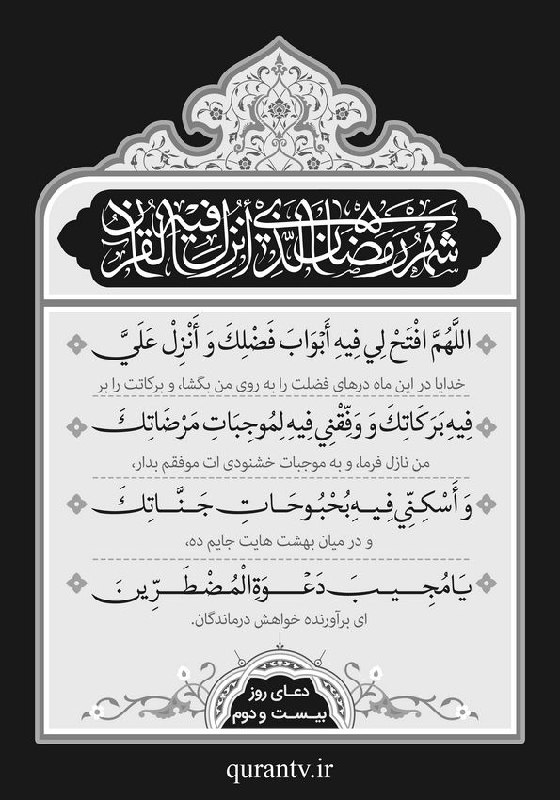 شهر رمضان الذی أنزل فیه القرآن
اللَّهُمَّ افْتَحْ لِي فِيهِ أَبْوَابَ فَضْلِكَ وَ أَنْزِلْ عَلَيَّ
خدایا در این ماه درهای فضلت را به روی من بگشا، و برکاتت را بر
فِيهِ بَرَكَاتِكَ وَ وَفِّقْنِي فِيهِ لِمُوجِبَاتِ مَرْضَاتِكَ
من نازل فرما، و به موجبات خشنودی ات موفقم بدار،
وَ أَسْكِنِّي فِيهِ بُحْبُوحَاتِ جَنَّاتِكَ
و در میان بهشت هایت جایم ده،
يَا مُجِيبَ دَعْوَةِ الْمُضْطَرِّينَ
ای برآورنده خواهش درماندگان.
دعـای روز
بیـسـت و دوم
qurantv.ir